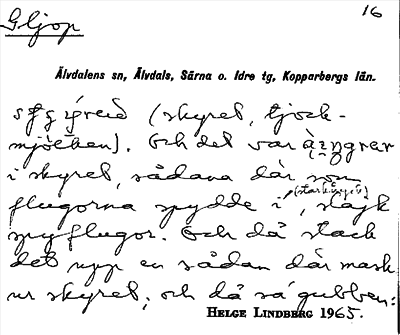 Gljop
16
Älvdalens sn, Älvdals, Särna o. Idre tg, Kopparbergs län.
(skyret, tjock-
mjölken). Och det var åingrar
i skyret, sådana där som
(starkingji)
flugorna spydde i, slajk
spyflugor. Och då stack
det upp en sådan där mask
ur skyret, och då sa gubben:
HELGE LINDBERG 1965.